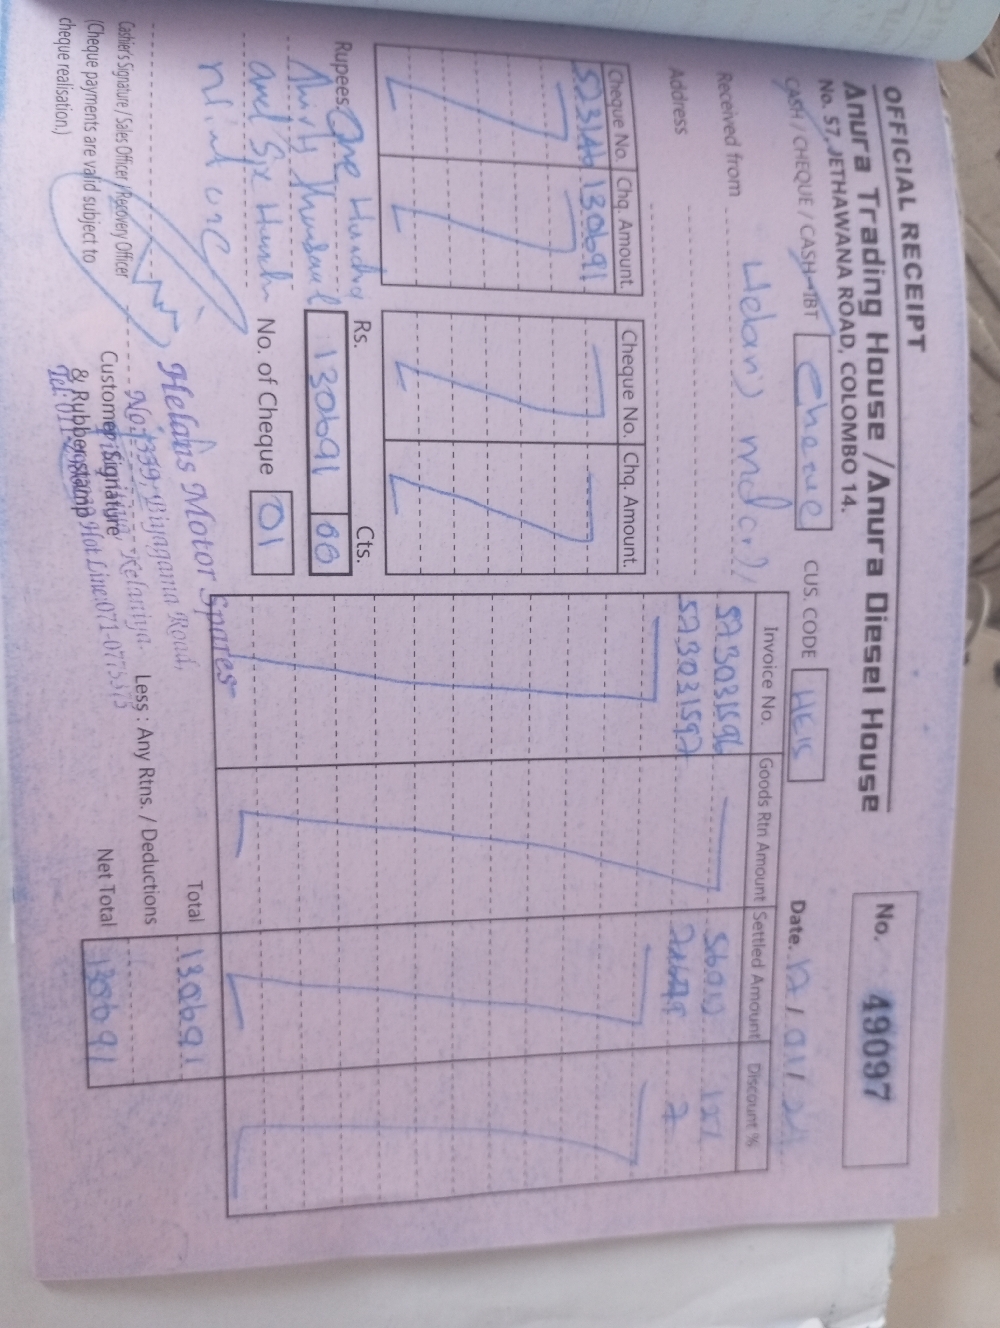 OFFICIAL RECEIPT
Anura Trading House / Anura Diesel House
No. 57, JETHAWANA ROAD, COLOMBO 14.
No. 49097
CASH / CHEQUE / CASH - IBT Cheque
CUS. CODE
Date. 12 / 01 /
Received from
Address
Cheque No. Chq. Amount. Cheque No. Chq. Amount.
523146 130691
Invoice No. Goods Rtn Amount Settled Amount Discount %
5730031596
5730031597
Rupees. One Hundred
Thirty Thousand
and Six Hundred
Ninty one
Rs. Cts.
130691 00
No. of Cheque 01
Total 130691
Less : Any Rtns. / Deductions
Net Total 130691
Cashier's Signature / Sales Officer / Recovery Officer
(Cheque payments are valid subject to
cheque realisation.)
Customer Signature
& Rubberstamp
Helans Motor Spares
No. 339, Biyagama Road,
Kelaniya.
Hot Line:071-0775375